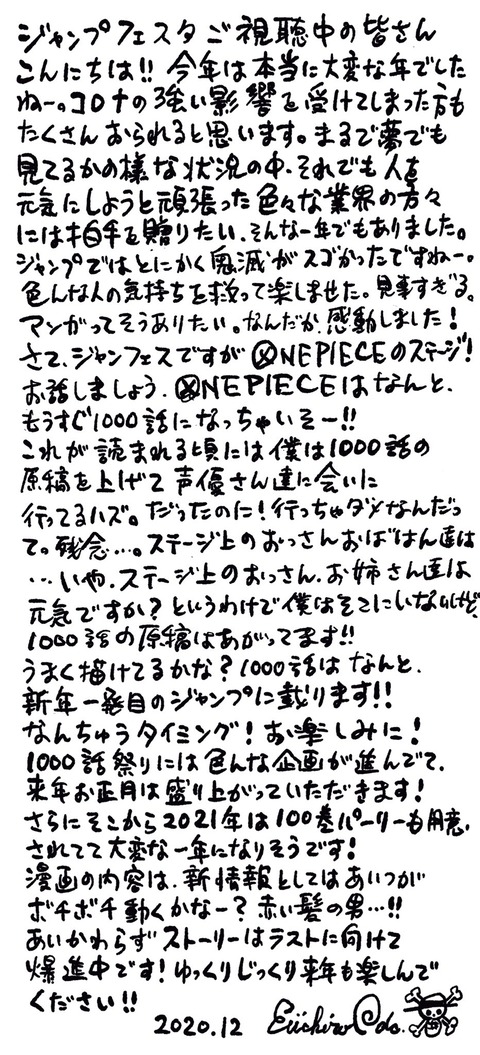 ジャンプフェスタご視聴中の皆さん
こんにちは!! 今年は本当に大変な年でした
ねー。コロナの強い影響を受けてしまった方も
たくさんおられると思います。まるで夢でも
見てるかの様な状況の中、それでも人を
元気にしようと頑張った色々な業界の方々
には拍手を贈りたい、そんな一年でもありました。
ジャンプではとにかく鬼滅がスゴかったですねー。
色んな人の気持ちを救って楽しませた。見事すぎる。
マンガってそうありたい。なんだか感動しました!
さて、ジャンフェスですが ONE PIECEのステージ!
お話しましょう。ONE PIECEはなんと、
もうすぐ1000話になっちゃいそー!!
これが読まれる頃には僕は1000話の
原稿を上げて声優さん達に会いに
行ってるハズ。だったのに!行っちゃダメなんだっ
て。残念…。ステージ上のおっさんおばはん達は
…いや、ステージ上のおっさん、お姉さん達は
元気ですか?というわけで僕はそこにいないけど、
1000話の原稿はあがってます!!
うまく描けてるかな?1000話はなんと、
新年一発目のジャンプに載ります!!
なんちゅうタイミング!お楽しみに!
1000話祭りには色んな企画が進んでて、
来年お正月は盛り上がっていただきます!
さらにそこから2021年は100巻パーリーも用意
されてて大変な一年になりそうです!
漫画の内容は、新情報としてはあいつが
ボチボチ動くかなー?赤い髪の男…!!
あいかわらずストーリーはラストに向けて
爆進中です!ゆっくりじっくり来年も楽しんで
ください!!
2020.12 Eiichiro Oda.